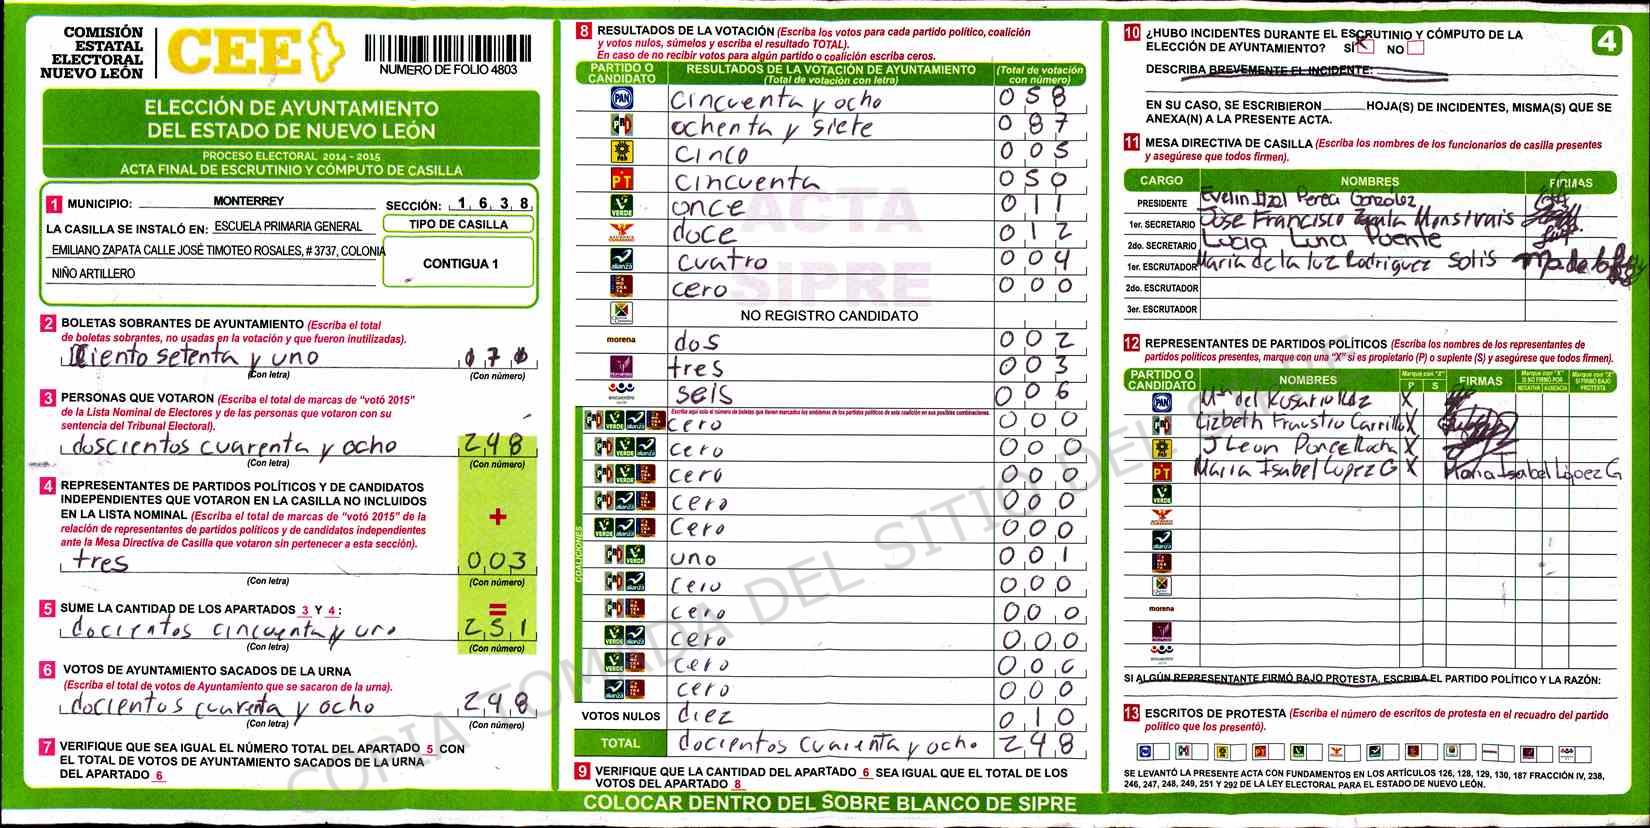 COMISIÓN
ESTATAL
ELECTORAL
NUEVO LEÓN
CEE
NUMERO DE FOLIO 4803
ELECCIÓN DE AYUNTAMIENTO
DEL ESTADO DE NUEVO LEÓN
PROCESO ELECTORAL 2014 - 2015
ACTA FINAL DE ESCRUTINIO Y CÓMPUTO DE CASILLA
1 MUNICIPIO: MONTERREY SECCIÓN: 1 6 3 8
LA CASILLA SE INSTALÓ EN: ESCUELA PRIMARIA GENERAL
EMILIANO ZAPATA CALLE JOSÉ TIMOTEO ROSALES, # 3737, COLONIA
NIÑO ARTILLERO
TIPO DE CASILLA
CONTIGUA 1
2 BOLETAS SOBRANTES DE AYUNTAMIENTO (Escriba el total
de boletas sobrantes, no usadas en la votación y que fueron inutilizadas).
Ciento setenta y uno
(Con letra) (Con número)
3 PERSONAS QUE VOTARON (Escriba el total de marcas de "votó 2015"
de la Lista Nominal de Electores y de las personas que votaron con su
sentencia del Tribunal Electoral).
doscientos cuarenta y ocho 248
(Con letra) (Con número)
4 REPRESENTANTES DE PARTIDOS POLÍTICOS Y DE CANDIDATOS
INDEPENDIENTES QUE VOTARON EN LA CASILLA NO INCLUIDOS
EN LA LISTA NOMINAL (Escriba el total de marcas de "votó 2015" de la
relación de representantes de partidos políticos y de candidatos independientes
ante la Mesa Directiva de Casilla que votaron sin pertenecer a esta sección).
+
tres 003
(Con letra) (Con número)
=
5 SUME LA CANTIDAD DE LOS APARTADOS 3 Y 4 :
docientos cincuenta y uno 251
(Con letra) (Con número)
6 VOTOS DE AYUNTAMIENTO SACADOS DE LA URNA
(Escriba el total de votos de Ayuntamiento que se sacaron de la urna).
docientos cuarenta y ocho 248
(Con letra) (Con número)
7 VERIFIQUE QUE SEA IGUAL EL NÚMERO TOTAL DEL APARTADO 5 CON
EL TOTAL DE VOTOS DE AYUNTAMIENTO SACADOS DE LA URNA
DEL APARTADO 6
8 RESULTADOS DE LA VOTACIÓN (Escriba los votos para cada partido político, coalición
y votos nulos, súmelos y escriba el resultado TOTAL).
En caso de no recibir votos para algún partido o coalición escriba ceros.
PARTIDO O CANDIDATO RESULTADOS DE LA VOTACIÓN DE AYUNTAMIENTO (Total de votación con letra) (Total de votación con número)
PAN Cincuenta y ocho 058
PRD ochenta y siete 087
Cinco 005
PT Cincuenta 050
VERDE once 011
doce 012
alianza cuatro 004
cero 000
NO REGISTRO CANDIDATO
morena dos 002
tres 003
encuentro seis 006
COALICIONES
Escriba aquí solo el número de boletas que tienen marcados los emblemas de los partidos políticos de esta coalición en sus posibles combinaciones.
cero 000
cero 000
cero 000
cero 000
cero 000
uno 001
cero 000
cero 000
cero 000
cero 000
cero 000
VOTOS NULOS diez 010
TOTAL docientos cuarenta y ocho 248
9 VERIFIQUE QUE LA CANTIDAD DEL APARTADO 6 SEA IGUAL QUE EL TOTAL DE LOS
VOTOS DEL APARTADO 8
COLOCAR DENTRO DEL SOBRE BLANCO DE SIPRE
ACTA
SIPRE
COPIA TOMADA DEL SITIO DEL
10 ¿HUBO INCIDENTES DURANTE EL ESCRUTINIO Y CÓMPUTO DE LA
ELECCIÓN DE AYUNTAMIENTO? SÍ X NO
4
DESCRIBA BREVEMENTE EL INCIDENTE:
EN SU CASO, SE ESCRIBIERON HOJA(S) DE INCIDENTES, MISMA(S) QUE SE
ANEXA(N) A LA PRESENTE ACTA.
11 MESA DIRECTIVA DE CASILLA (Escriba los nombres de los funcionarios de casilla presentes
y asegúrese que todos firmen).
CARGO NOMBRES FIRMAS
PRESIDENTE Evelin Itzol Perea Gonzalez
1er. SECRETARIO Jose Francisco
2do. SECRETARIO Lucia Luna Puente
1er. ESCRUTADOR Maria de la luz Rodriguez Solis
2do. ESCRUTADOR
3er. ESCRUTADOR
12 REPRESENTANTES DE PARTIDOS POLÍTICOS (Escriba los nombres de los representantes de
partidos políticos presentes, marque con una "X" si es propietario (P) o suplente (S) y asegúrese que todos firmen).
PARTIDO O CANDIDATO NOMBRES Marque con "X" P S FIRMAS Marque con "X" SI NO FIRMÓ POR NEGATIVA AUSENCIA Marque con "X" SI FIRMÓ BAJO PROTESTA
PAN Ma del Rosario X
PRD Lizbeth Fausto Carrillo X
J Leon Ponce X
PT Maria Isabel Lopez G X Maria Isabel López G
VERDE
alianza
morena
SI ALGÚN REPRESENTANTE FIRMÓ BAJO PROTESTA, ESCRIBA EL PARTIDO POLÍTICO Y LA RAZÓN:
13 ESCRITOS DE PROTESTA (Escriba el número de escritos de protesta en el recuadro del partido
político que los presentó).
SE LEVANTÓ LA PRESENTE ACTA CON FUNDAMENTOS EN LOS ARTÍCULOS 126, 128, 129, 130, 187 FRACCIÓN IV, 238,
246, 247, 248, 249, 251 Y 292 DE LA LEY ELECTORAL PARA EL ESTADO DE NUEVO LEÓN.